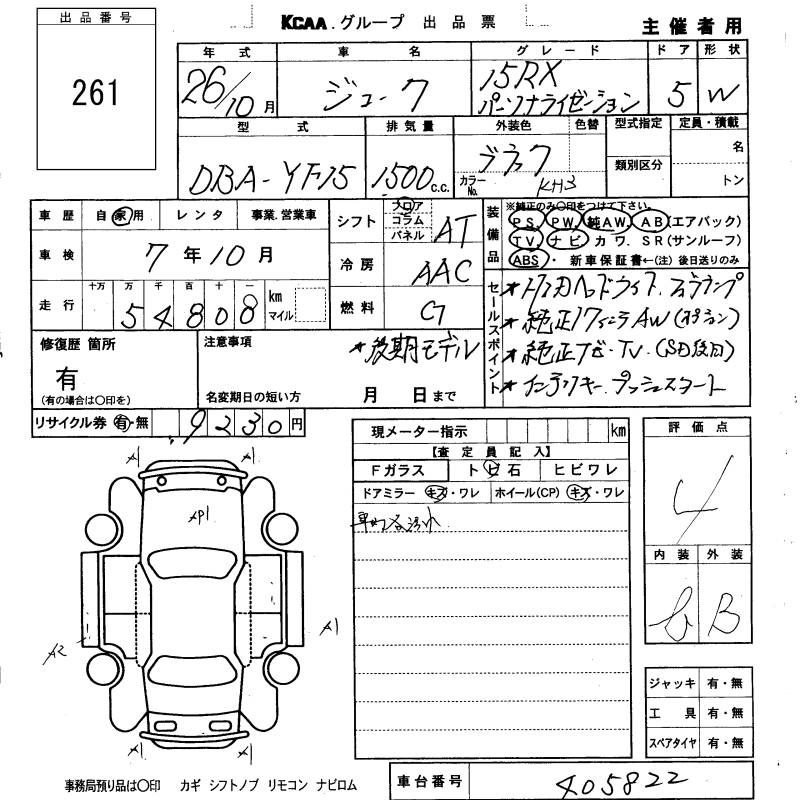 出品番号
261
KCAA.グループ 出品票
主催者用
年式 車名 グレード ドア 形状
26/10月 ジューク 15RX パーソナライゼーション 5 W
型式 排気量 外装色 色替 型式指定 定員・積載
DBA-YF15 1500c.c. ブラック 名
カラーNo. KH3 類別区分 トン
車歴 自家用 レンタ 事業.営業車
車検 7年10月
走行 十万 万 千 百 十 一 km マイル
54808
シフト フロア コラム パネル AT
冷房 AAC
燃料 G
装備品
※純正のみ○印をつけて下さい。
PS. PW. 純AW. AB(エアバック)
TV. ナビ カワ. SR(サンルーフ)
ABS・ 新車保証書←(注)後日送りのみ
セールスポイント
★ ヘッドライト.フォグランプ
★純正17インチAW(オプション)
★純正ナビ・TV.(SD後日)
★インテリキー プッシュスタート
修復歴 箇所
有
(有の場合は○印を)
注意事項
★後期モデル
名変期日の短い方 月 日まで
リサイクル券 有・無 9230円
現メーター指示 km
【査定員記入】
Fガラス トビ石 ヒビワレ
ドアミラー キズ・ワレ ホイール(CP) キズ・ワレ
評価点
4
内装 外装
b B
A1 A1
AP1
A2 A1
A1 A1
ジャッキ 有・無
工具 有・無
スペアタイヤ 有・無
事務局預り品は○印 カギ シフトノブ リモコン ナビロム
車台番号 405822